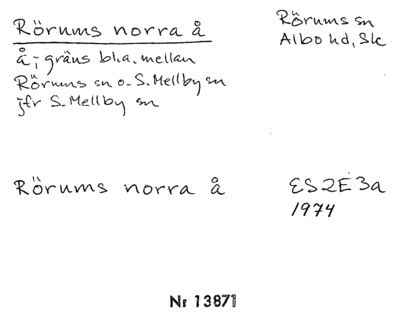 Rörums norra å
Rörums sn
Albo hd, Sk
å; gräns bl.a. mellan
Rörums sn o. S. Mellby sn
jfr S. Mellby sn
Rörums norra å
ES2E3a
1974
Nr 13871